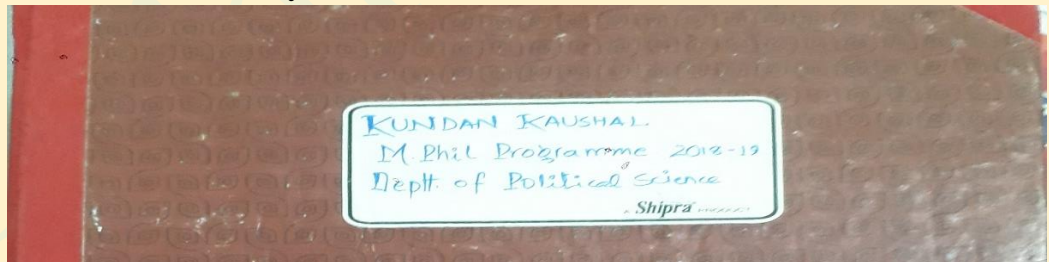 KUNDAN KAUSHAL
M.Phil Programme 2018-19
Deptt. of Political Science
Shipra